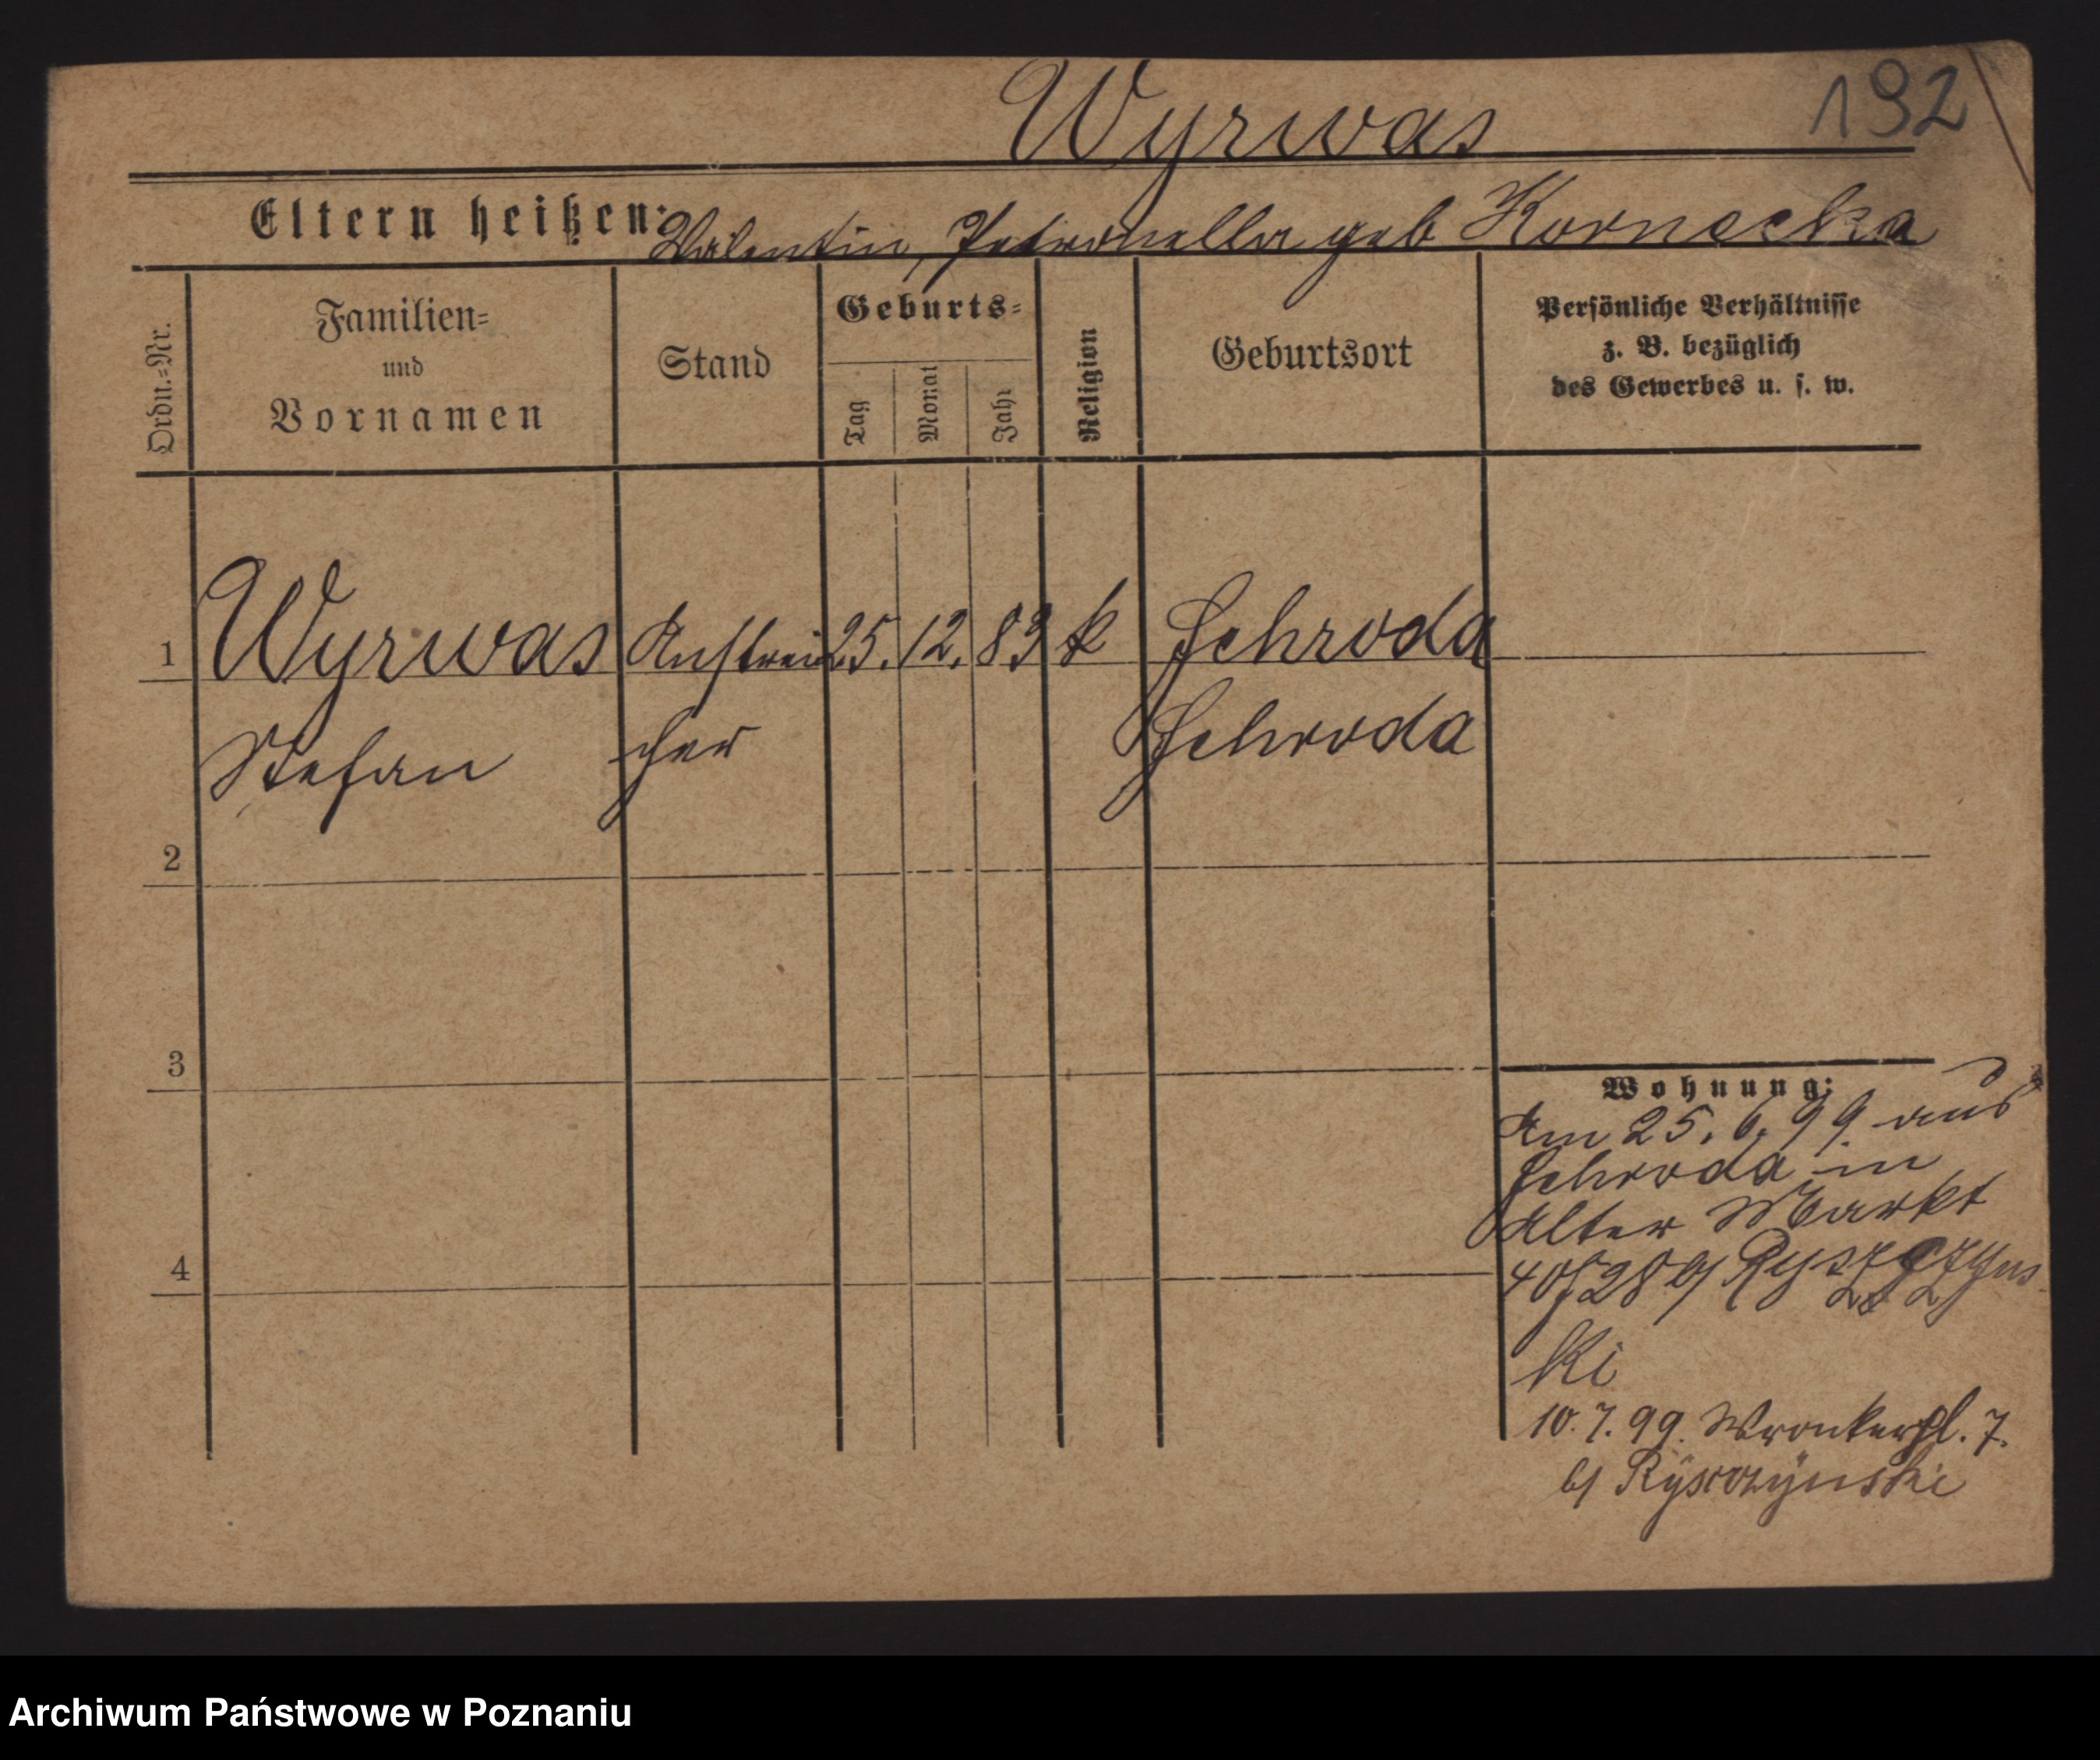 Wyrwas
192
Eltern heißen: Valentin, Petronella geb Kornecka
Ordn.=Nr.
Familien=
und
Vornamen
Stand
Geburts=
Tag
Monat
Jahr
Religion
Geburtsort
Persönliche Verhältnisse
z. B. bezüglich
des Gewerbes u. s. w.
1 Wyrwas Anstrei 25. 12. 83 k Schroda
Stefan cher Schroda
2
3
4
Wohnung:
Am 25. 6. 99 aus
Schroda in
Alter Markt
b/
ki
10. 7. 99. Wronkerpl. 7.
b/ Ryszczynski
Archiwum Państwowe w Poznaniu